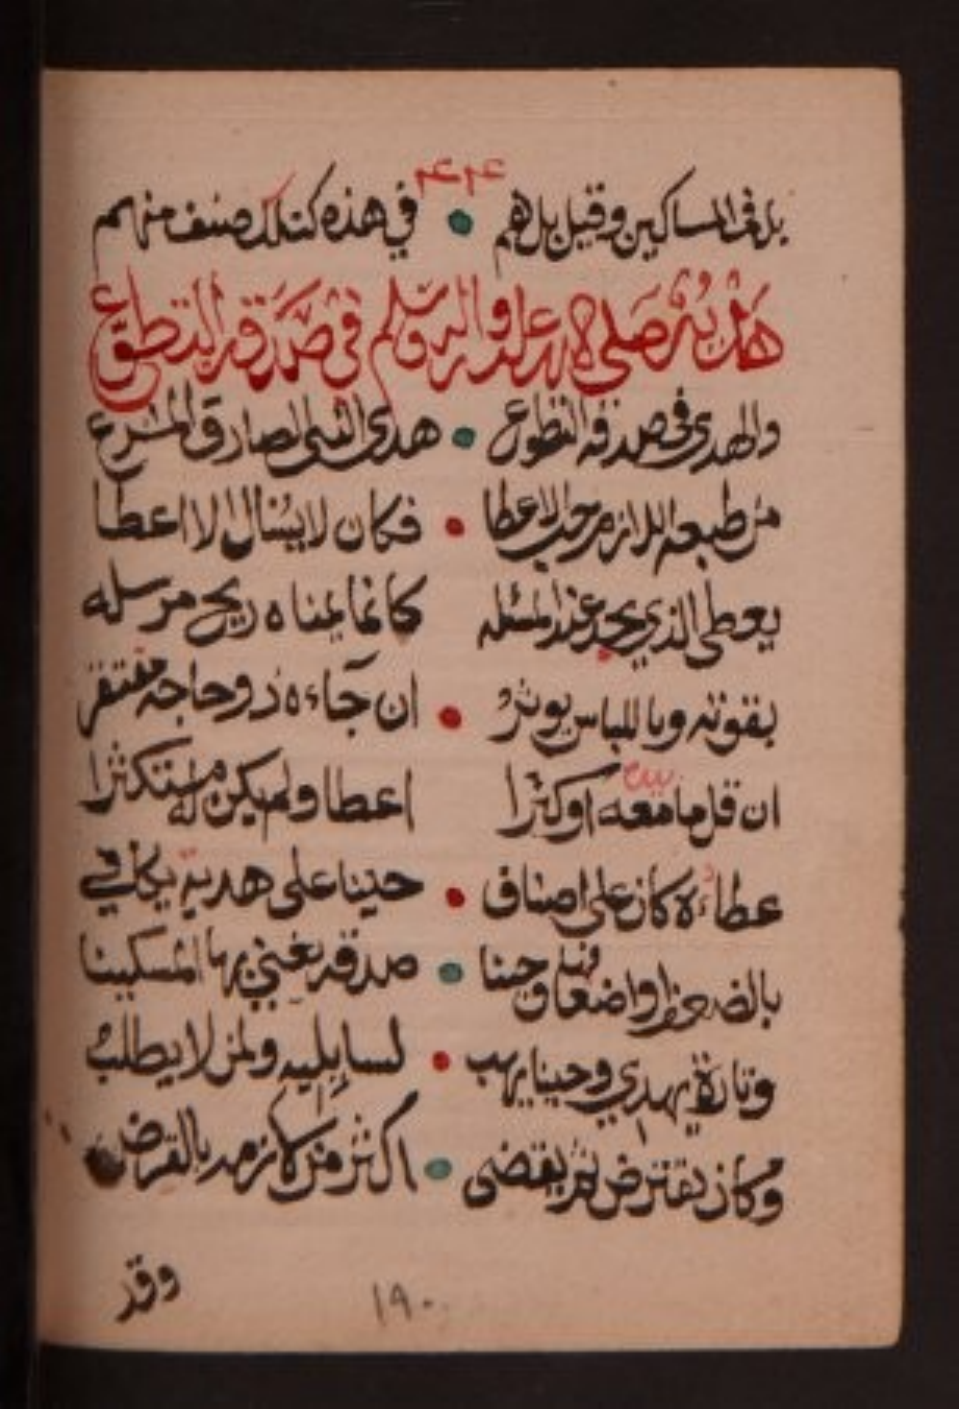 بل في المساكين وقيل بل هم في هذه كذلك صنف منهم
هديه صلى الله عليه واله وسلم في صدقة التطوع
والهدي في صدقة التطوع هدي النبي الصادق المشرع
من طبعه اللازم حب الاعطا فكان لا يسئال الا اعطا
يعطي الذي يجد عند المسئله كانما يمناه ريح مرسله
بقوته وباللباس يوثر ان جآءه ذو حاجه مفتقر
ان قل ما معه او كثرا اعطا ولم يكن له مستكثرا
عطاءه كان على اصناف حينا على هديه يكافي
بالضعف او اضعاف وحينا صدقه يغني بها المسكينا
وتارة يهدي وحينا يهب لسايليه ولمن لا يطلب
وكان يقترض ثم يقضي اكثر من لازمه بالقرض
وقد
١٩٠